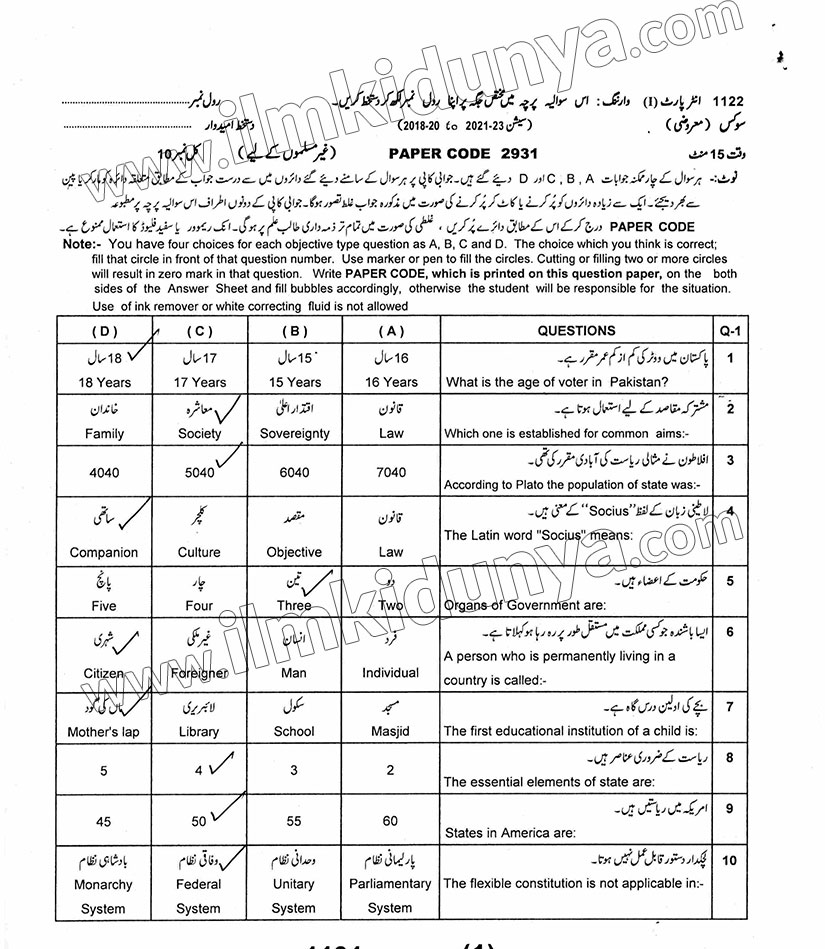 www.ilmkidunya.com
1122 انٹر پارٹ (I) وارننگ: اس سوالیہ پرچہ میں مختص جگہ پر اپنا رول نمبر لکھ کر دستخط کریں۔ رول نمبر
سوکس (معروضی) (سیشن 2021-23 to 2018-20) دستخط امیدوار
وقت 15 منٹ PAPER CODE 2931 (غیر مسلموں کے لیے) کل نمبر 10
نوٹ:- ہر سوال کے چار ممکنہ جوابات A ,B ,C اور D دیئے گئے ہیں۔ جوابی کاپی پر ہر سوال کے سامنے دیئے گئے دائروں میں سے درست جواب کے مطابق متعلقہ دائرہ کو مارکر یا پین
سے بھر دیجئے۔ ایک سے زیادہ دائروں کو پُر کرنے یا کاٹ کر پُر کرنے کی صورت میں مذکورہ جواب غلط تصور ہوگا۔ جوابی کاپی کے دونوں اطراف اس سوالیہ پرچہ پر مطبوعہ
PAPER CODE درج کر کے اس کے مطابق دائرے پُر کریں، غلطی کی صورت میں تمام تر ذمہ داری طالب علم پر ہوگی۔ انک ریموور یا سفید فلیوڈ کا استعمال ممنوع ہے۔
Note:- You have four choices for each objective type question as A, B, C and D. The choice which you think is correct;
fill that circle in front of that question number. Use marker or pen to fill the circles. Cutting or filling two or more circles
will result in zero mark in that question. Write PAPER CODE, which is printed on this question paper, on the both
sides of the Answer Sheet and fill bubbles accordingly, otherwise the student will be responsible for the situation.
Use of ink remover or white correcting fluid is not allowed
(D) (C) (B) (A) QUESTIONS Q-1
18 سال 17 سال 15 سال 16 سال پاکستان میں ووٹر کی کم از کم عمر مقرر ہے۔ 1
18 Years 17 Years 15 Years 16 Years What is the age of voter in Pakistan?
خاندان معاشرہ اقتدار اعلیٰ قانون مشترکہ مقاصد کے لیے استعمال ہوتا ہے۔ 2
Family Society Sovereignty Law Which one is established for common aims:-
افلاطون نے مثالی ریاست کی آبادی مقرر کی تھی۔ 3
4040 5040 6040 7040
According to Plato the population of state was:-
ساتھی کلچر مقصد قانون لاطینی زبان کے لفظ "Socius" کے معنی ہیں۔ 4
Companion Culture Objective Law The Latin word "Socius" means:
پانچ چار تین دو حکومت کے اعضاء ہیں۔ 5
Five Four Three Two Organs of Government are:
شہری غیر ملکی انسان فرد ایسا باشندہ جو کسی مملکت میں مستقل طور پر رہ رہا ہو کہلاتا ہے۔ 6
Citizen Foreigner Man Individual A person who is permanently living in a
country is called:-
ماں کی گود لائبریری سکول مسجد بچے کی اولین درس گاہ ہے۔ 7
Mother's lap Library School Masjid The first educational institution of a child is:
ریاست کے ضروری عناصر ہیں۔ 8
5 4 3 2 The essential elements of state are:
امریکہ میں ریاستیں ہیں۔ 9
45 50 55 60 States in America are:
بادشاہی نظام وفاقی نظام وحدانی نظام پارلیمانی نظام لچکدار دستور قابل عمل نہیں ہوتا۔ 10
Monarchy Federal Unitary Parliamentary The flexible constitution is not applicable in:-
System System System System
www.ilmkidunya.com